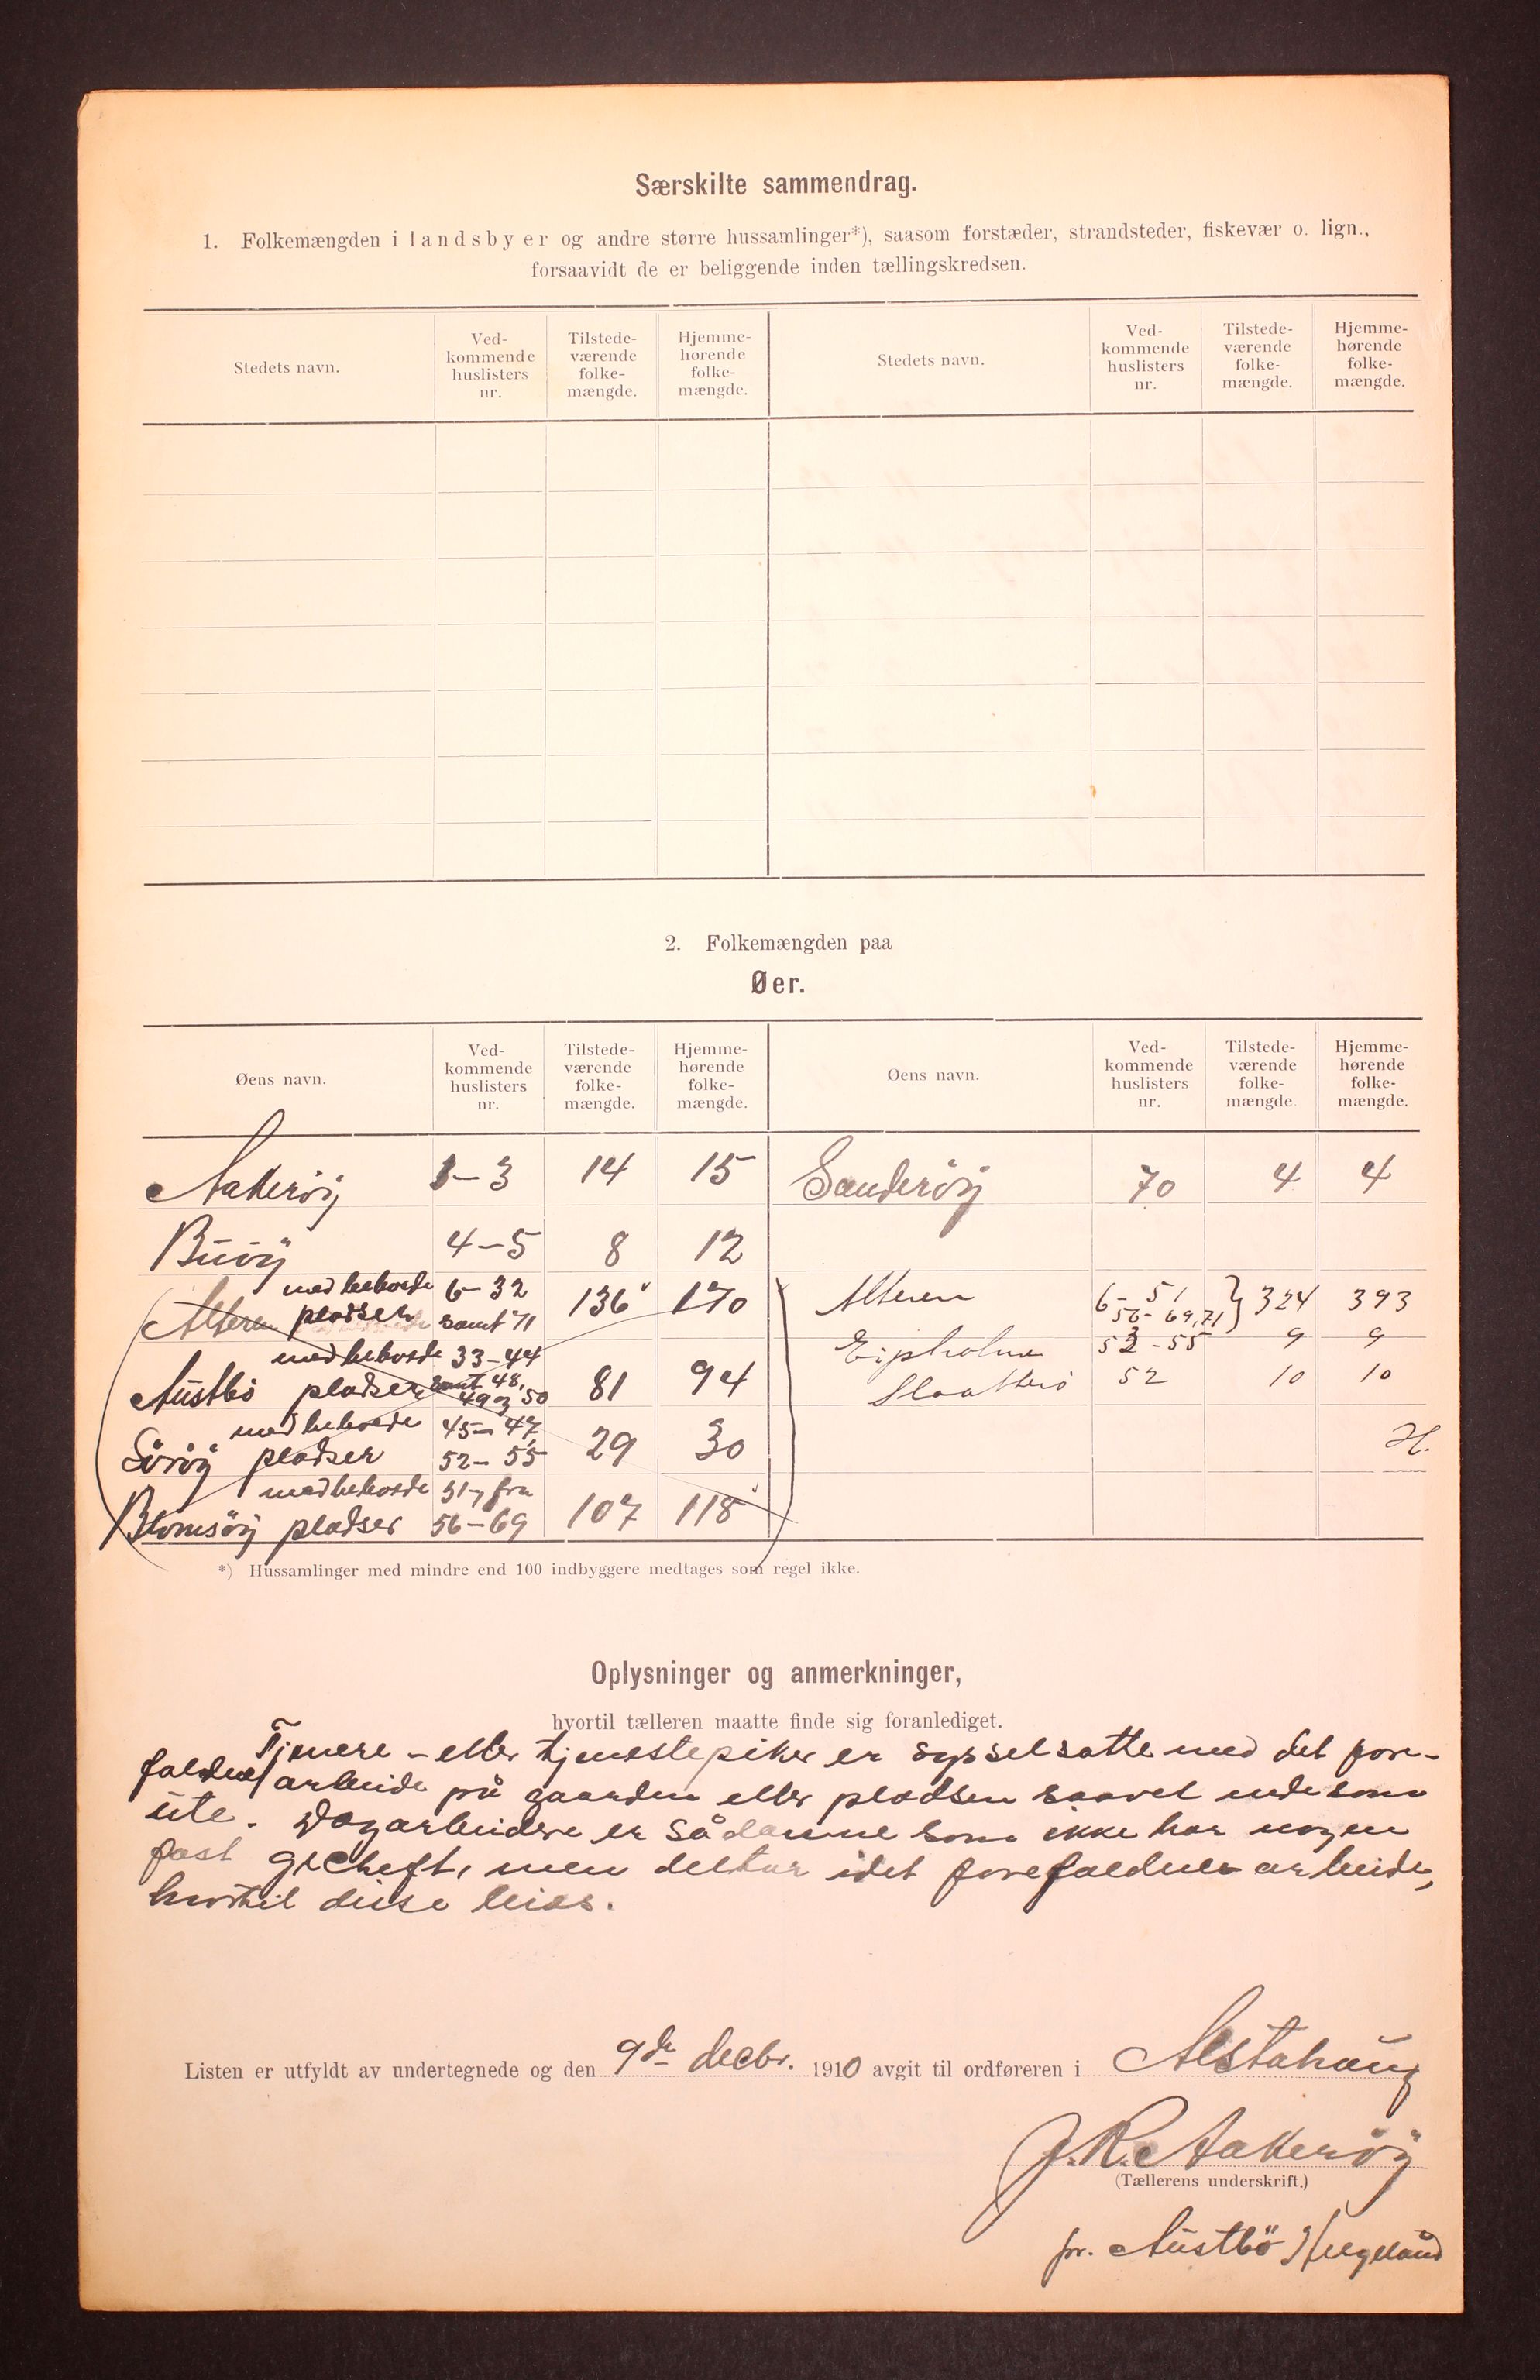 Særskilte sammendrag.
1. Folkemængden i landsbyer og andre større hussamlinger*), saasom forstæder, strandsteder, fiskevær o. lign.,
forsaavidt de er beliggende inden tællingskredsen.
Stedets navn. Ved-kommende huslisters nr. Tilstede-værende folke-mængde. Hjemme-hørende folke-mængde. Stedets navn. Ved-kommende huslisters nr. Tilstede-værende folke-mængde. Hjemme-hørende folke-mængde.
2. Folkemængden paa
Øer.
Øens navn. Ved-kommende huslisters nr. Tilstede-værende folke-mængde. Hjemme-hørende folke-mængde. Øens navn. Ved-kommende huslisters nr. Tilstede-værende folke-mængde Hjemme-hørende folke-mængde.
Aakeröy 1-3 14 15 Sanderöy 70 4 4
Buöy 4-5 8 12
med beboede 6-32
Alteren pladser samt 71 136 170 Alteren 6-51 56-69,71 } 324 393
med beboede 33-44
Austbö pladser samt 48, 49 og 50 81 94
53-55 9 9
52 10 10
med beboede 45-47,
Söröy pladser 52-55 29 30 H.
med beboede 51, fra
Blomsöy pladser 56-69 107 118
*) Hussamlinger med mindre end 100 indbyggere medtages som regel ikke.
Oplysninger og anmerkninger,
hvortil tælleren maatte finde sig foranlediget.
Tjenere - eller tjenestepiker er sysselsatte med det fore-
faldne arbeide på gaarden eller pladsen saavel inde som
ute. Dagarbeidere er sådanne som ikke har nogen
fast gecheft, men deltar i det forefaldne arbeide,
hvortil disse leies.
Listen er utfyldt av undertegnede og den 9de decbr. 1910 avgit til ordføreren i Alstahaug
J. R. Aakeröy
(Tællerens underskrift.)
pr. Austbö Helgeland